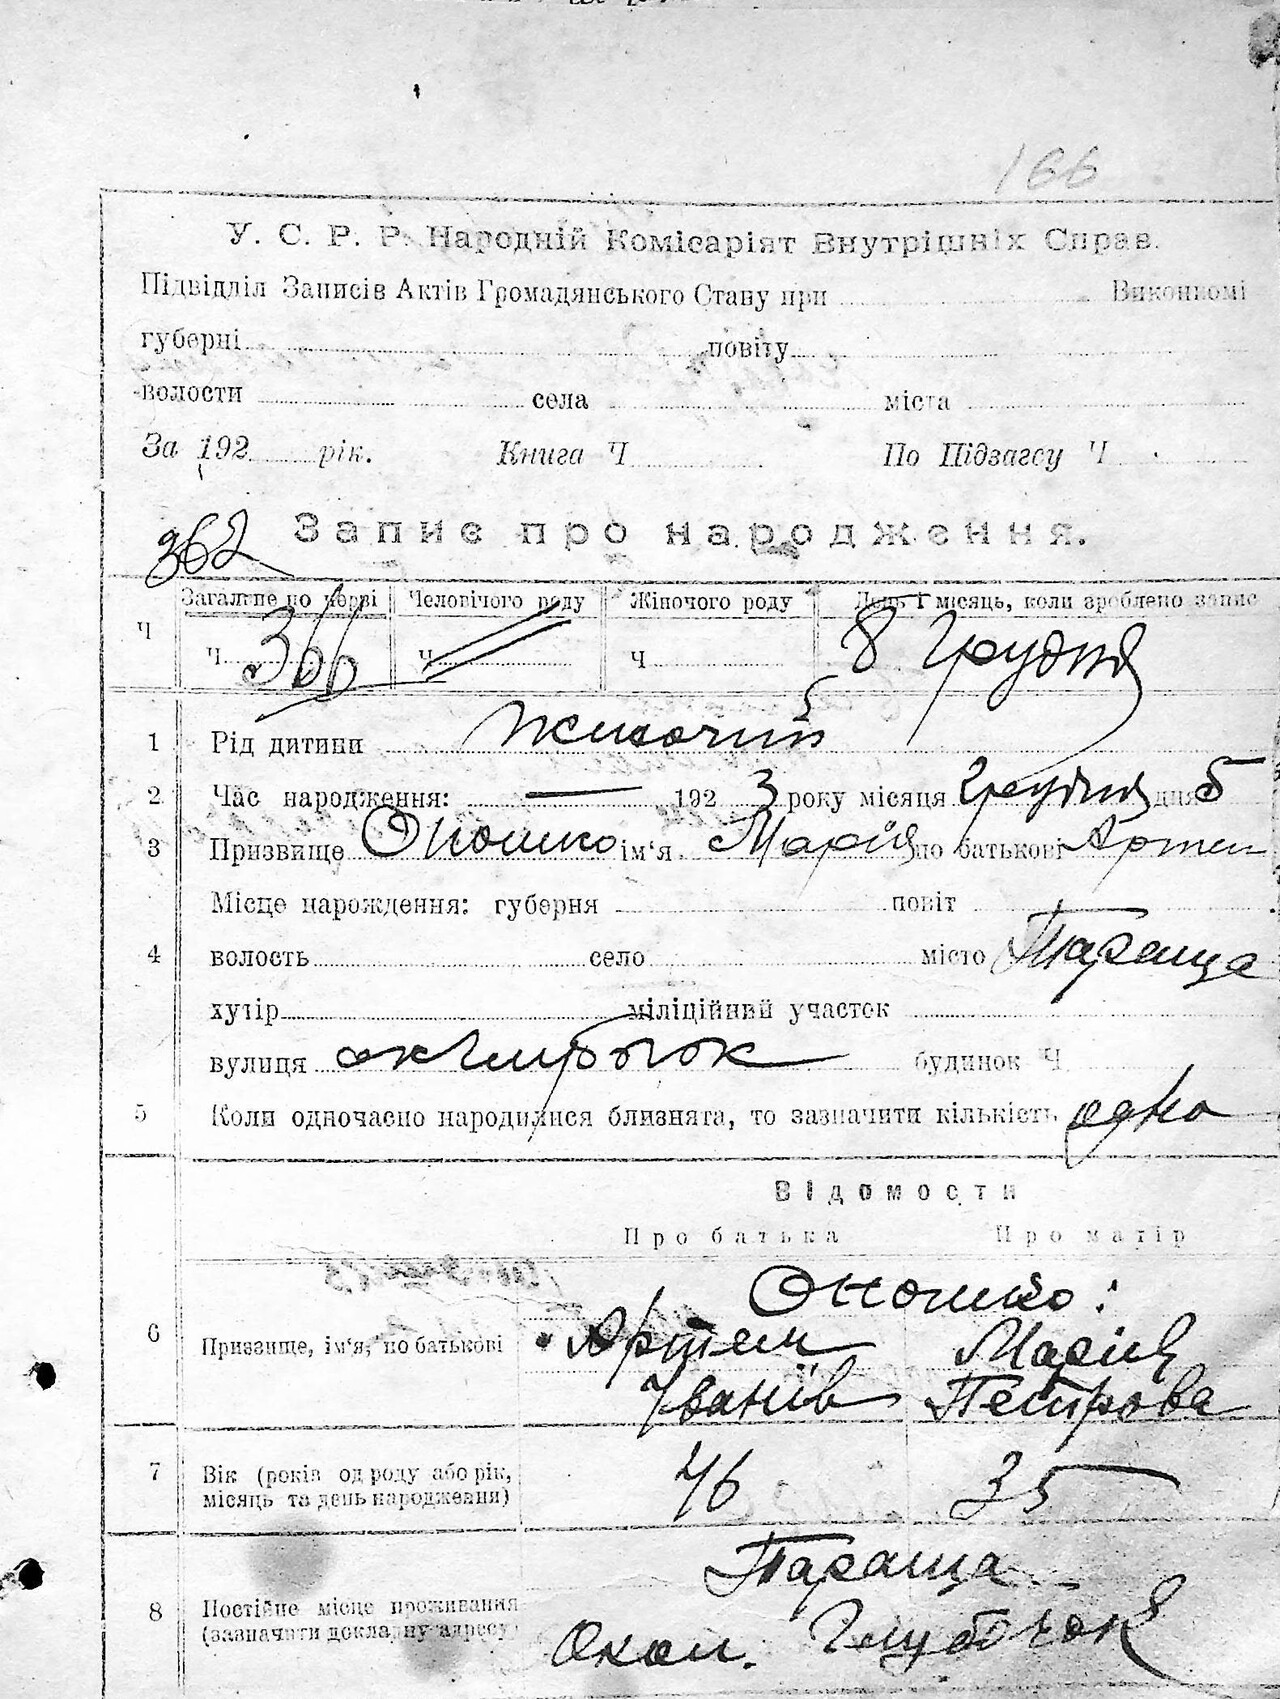 166
У. С. Р. Р. Народній Комісаріят Внутрішніх Справ.
Підвідділ Записів Актів Громадянського Стану при Виконкомі
губерні повіту
волости села міста
За 192 рік. Книга Ч По Підзагсу Ч
362 Запис про народження.
Загальне по черві Человічого роду Жіночого роду День і місяць, коли зроблено запис
Ч Ч 366 Ч Ч 8 Грудня
1 Рід дитини жиночий
2 Час народження: — 1923 року місяця Грудня дня 5
3 Призвище Оношко ім'я Марія по батькові Артем
Місце нарождення: губерня повіт
4 волость село місто Тараща
хутір міліційний участок
вулиця ок Глибочок будинок Ч
5 Коли одночасно народилися близнята, то зазначити кількість одно
Відомости
Про батька Про матір
Оношко:
6 Призвище, ім'я, по батькові Артем Марія
Іванів Петрова
7 Вік (років од роду або рік, 46 35
місяць та день народження)
Тараща
8 Постійне місце проживання
(зазначити докладну адресу) Окол. Глубочок